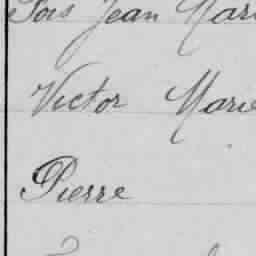 Jean Mari
Victor Marie
Pierre